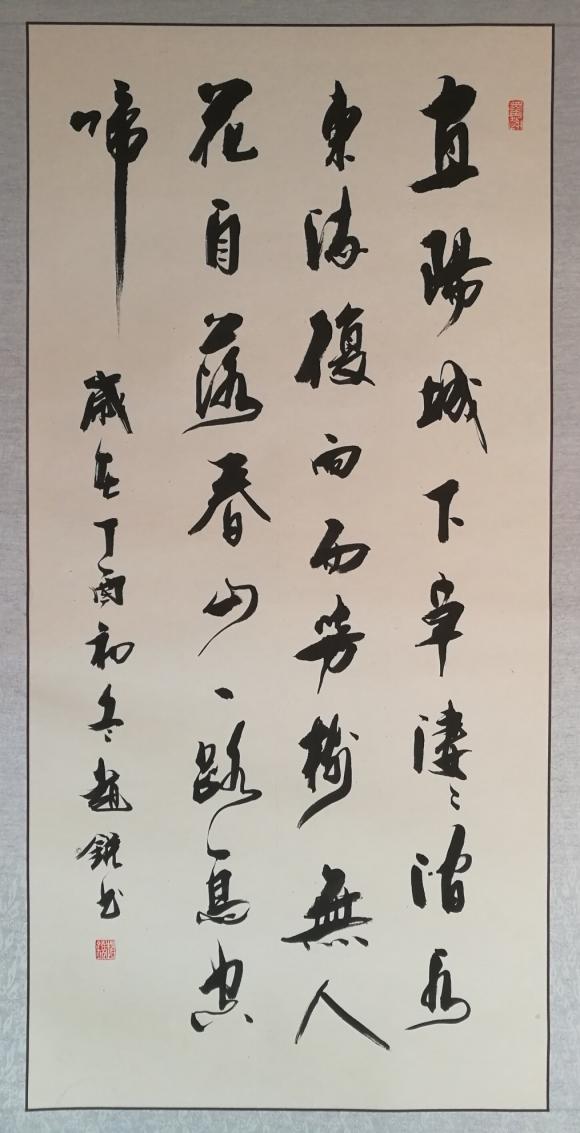 宜陽城下草凄〻澗水
東流復向西芳樹無人
花自落春山一路鳥空
啼 歲在丁酉初冬趙銳书